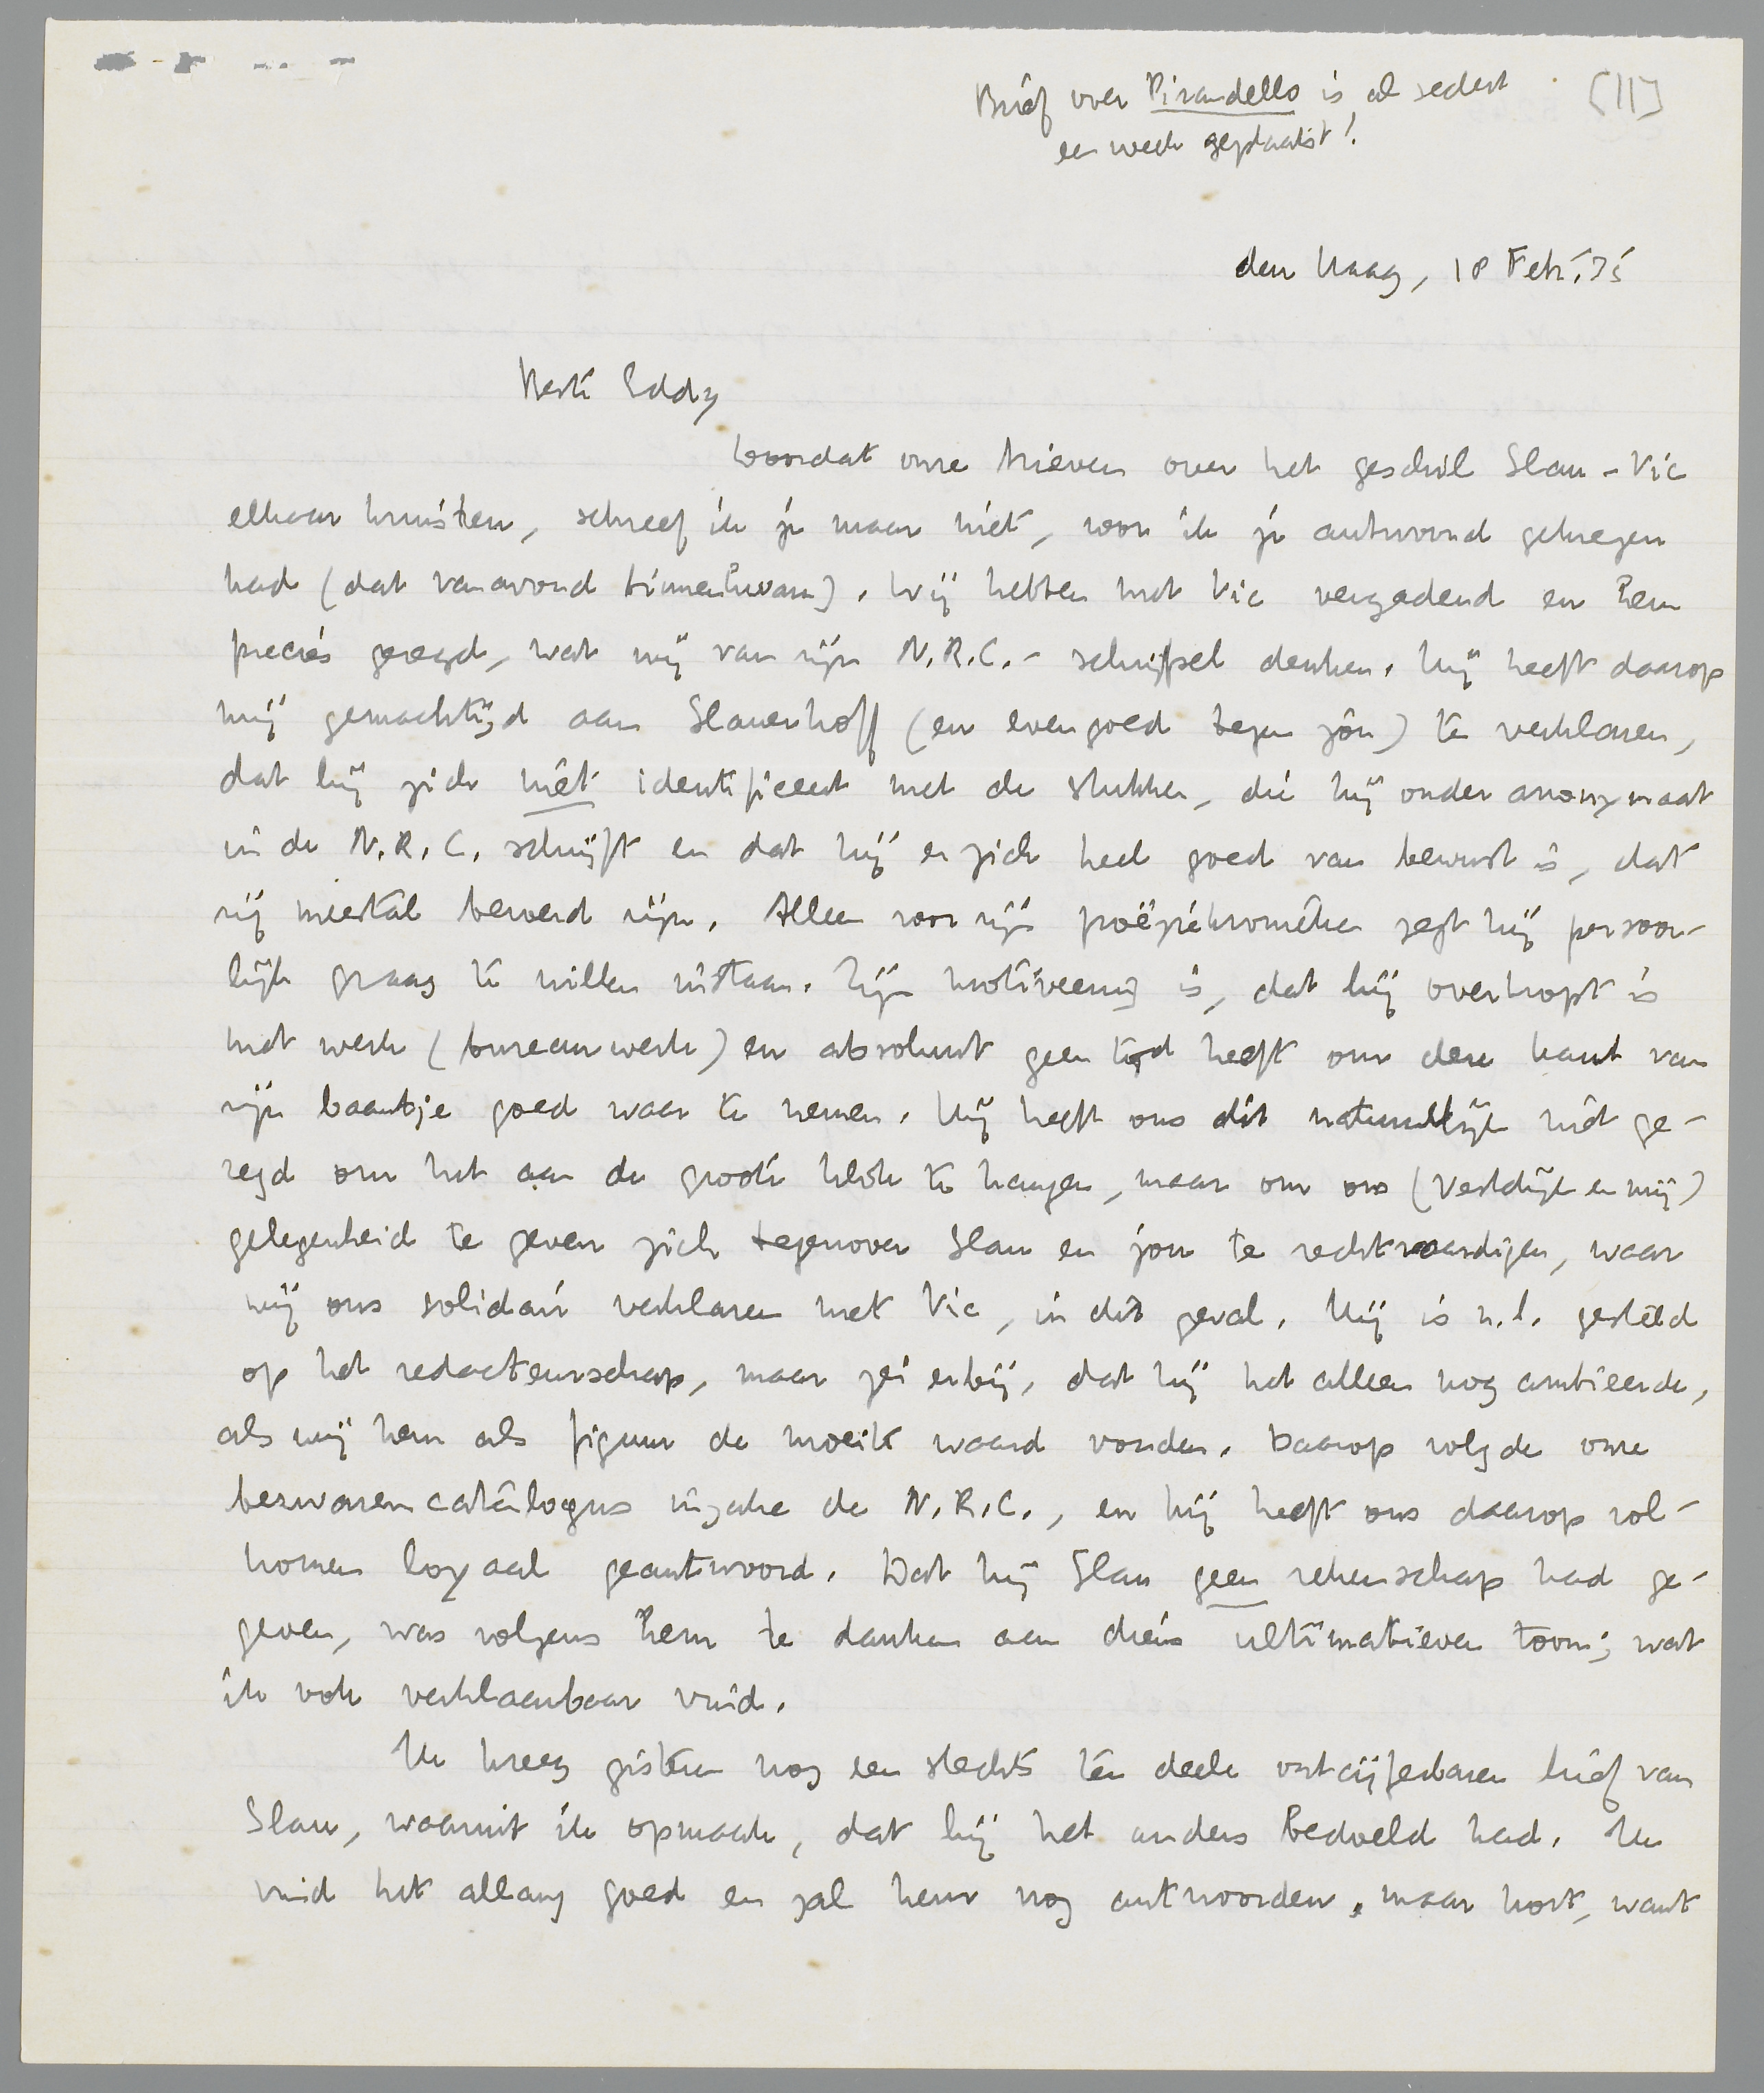 Brief over Pirandello is al sedert
een week geplaatst!
[11]
den Haag, 18 Febr. '35
Beste Eddy
Doordat onze brieven over het geschil Slau - Vic
elkaar kruisten, schreef ik je maar niet, voor ik je antwoord gekregen
had (dat vanavond binnenkwam). Wij hebben met Vic vergaderd en hem
precies gezegd, wat wij van zijn N.R.C.- schrijfsel denken. Hij heeft daarop
mij gemachtigd aan Slauerhoff (en evengoed tegen jou) te verklaren,
dat hij zich niet identificeert met de stukken, die hij onder anonymaat
in de N.R.C. schrijft en dat hij er zich heel goed van bewust is, dat
zij meestal beroerd zijn. Alleen voor zijn poëziekronieken zegt hij persoon-
lijk graag te willen instaan. Zijn motiveering is, dat hij overkropt is
met werk (bureauwerk) en absoluut geen tijd heeft om deze kant van
zijn baantje goed waar te nemen. Hij heeft ons dit natuurlijk niet ge-
zegd om het aan de groote klok te hangen, maar om ons (Vestdijk en mij)
gelegenheid te geven zich tegenover Slau en jou te rechtvaardigen, waar
wij ons solidair verklaren met Vic, in dit geval. Hij is n.l. gesteld
op het redacteurschap, maar zei erbij, dat hij het alleen nog ambieerde,
als wij hem als figuur de moeite waard vonden. Daarop volgde onze
bezwarencatalogus inzake de N.R.C., en hij heeft ons daarop vol-
komen loyaal geantwoord. Dat hij Slau geen rekenschap had ge-
geven, was volgens hem te danken aan diens ultimatieven toon; wat
ik ook verklaarbaar vind.
Ik kreeg gisteren nog een slechts ten deele ontcijferbaren brief van
Slau, waaruit ik opmaak, dat hij het anders bedoeld had. Ik
vind het allang goed en zal hem nog antwoorden, maar kort, want